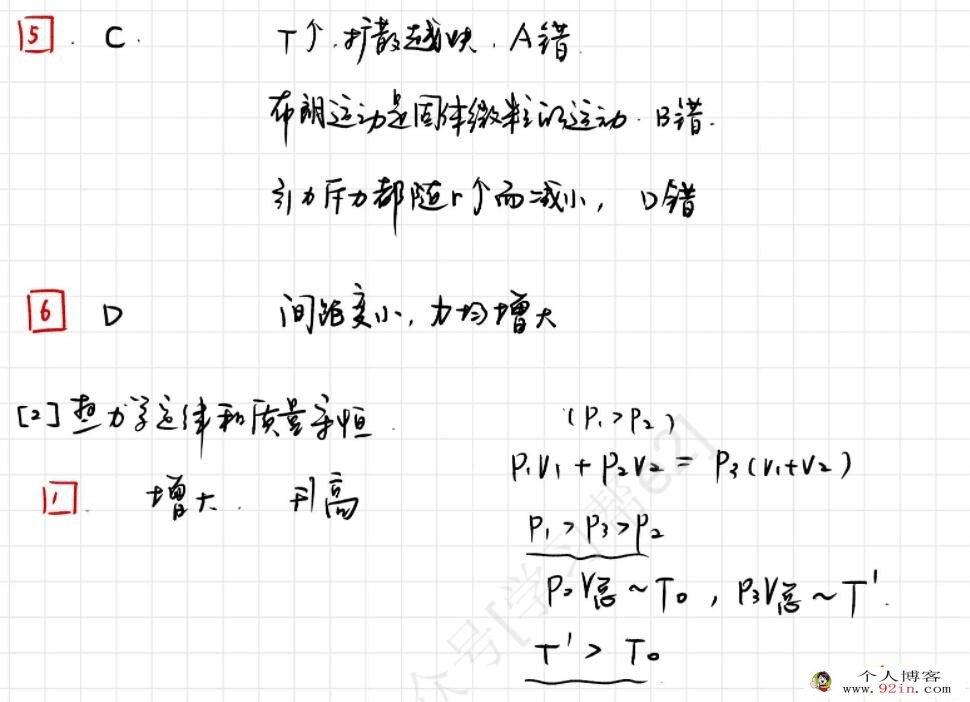 5. C. T↑.扩散越快. A错.
布朗运动是固体微粒的运动. B错.
引力斥力都随r↑而减小, D错
6 D 间距变小, 力均增大
[2] 热力学定律和质量守恒.
(P₁>P₂)
P₁V₁+P₂V₂=P₃(V₁+V₂)
1. 增大. 升高
P₁>P₃>P₂
P₂V总~T₀, P₃V总~T'.
T'>T₀
众号[学习帮62]
个人博客
www.92in.com